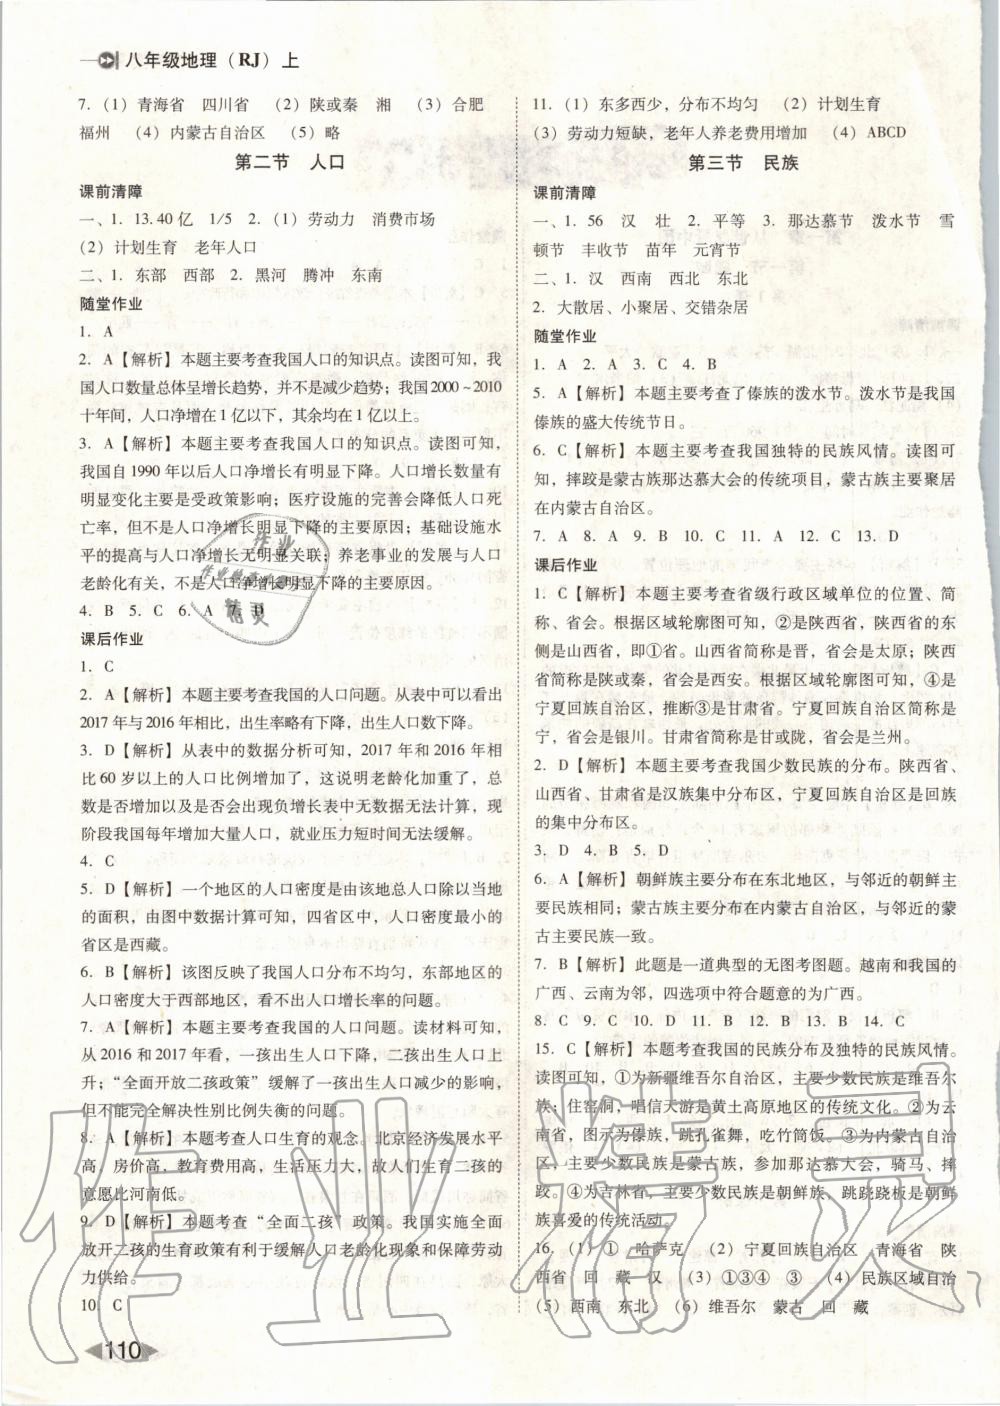 八年级地理（RJ）上
7.（1）青海省　四川省　（2）陕或秦　湘　（3）合肥
福州　（4）内蒙古自治区　（5）略
第二节　人口
课前清障
一、1. 13.40亿　1/5　2.（1）劳动力　消费市场
（2）计划生育　老年人口
二、1. 东部　西部　2. 黑河　腾冲　东南
随堂作业
1. A
2. A【解析】本题主要考查我国人口的知识点。读图可知，我
国人口数量总体呈增长趋势，并不是减少趋势；我国2000～2010
十年间，人口净增在1亿以下，其余均在1亿以上。
3. A【解析】本题主要考查我国人口的知识点。读图可知，
我国自1990年以后人口净增长有明显下降。人口增长数量有
明显变化主要是受政策影响；医疗设施的完善会降低人口死
亡率，但不是人口净增长明显下降的主要原因；基础设施水
平的提高与人口净增长无明显关联；养老事业的发展与人口
老龄化有关，不是人口净增长明显下降的主要原因。
4. B　5. C　6. A　7. D
课后作业
1. C
2. A【解析】本题主要考查我国的人口问题。从表中可以看出
2017年与2016年相比，出生率略有下降，出生人口数下降。
3. D【解析】从表中的数据分析可知，2017年和2016年相
比60岁以上的人口比例增加了，这说明老龄化加重了，总
数是否增加以及是否会出现负增长表中无数据无法计算，现
阶段我国每年增加大量人口，就业压力短时间无法缓解。
4. C
5. D【解析】一个地区的人口密度是由该地总人口除以当地
的面积，由图中数据计算可知，四省区中，人口密度最小的
省区是西藏。
6. B【解析】该图反映了我国人口分布不均匀，东部地区的
人口密度大于西部地区，看不出人口增长率的问题。
7. A【解析】本题主要考查我国的人口问题。读材料可知，
从2016和2017年看，一孩出生人口下降，二孩出生人口上
升；“全面开放二孩政策”缓解了一孩出生人口减少的影响，
但不能完全解决性别比例失衡的问题。
8. A【解析】本题考查人口生育的观念。北京经济发展水平
高，房价高，教育费用高，生活压力大，故人们生育二孩的
意愿比河南低。
9. D【解析】本题考查“全面二孩”政策。我国实施全面
放开二孩的生育政策有利于缓解人口老龄化现象和保障劳动
力供给。
10. C
110
11.（1）东多西少，分布不均匀　（2）计划生育
（3）劳动力短缺，老年人养老费用增加　（4）ABCD
第三节　民族
课前清障
一、1. 56　汉　壮　2. 平等　3. 那达慕节　泼水节　雪
顿节　丰收节　苗年　元宵节
二、1. 汉　西南　西北　东北
2. 大散居、小聚居、交错杂居
随堂作业
1. A　2. A　3. C　4. B
5. A【解析】本题主要考查了傣族的泼水节。泼水节是我国
傣族的盛大传统节日。
6. C【解析】本题主要考查我国独特的民族风情。读图可
知，摔跤是蒙古族那达慕大会的传统项目，蒙古族主要聚居
在内蒙古自治区。
7. A　8. A　9. B　10. C　11. A　12. C　13. D
课后作业
1. C【解析】本题主要考查省级行政区域单位的位置、简
称、省会。根据区域轮廓图可知，②是陕西省，陕西省的东
侧是山西省，即①省。山西省简称是晋，省会是太原；陕西
省简称是陕或秦，省会是西安。根据区域轮廓图可知，④是
宁夏回族自治区，推断③是甘肃省。宁夏回族自治区简称是
宁，省会是银川。甘肃省简称是甘或陇，省会是兰州。
2. D【解析】本题主要考查我国少数民族的分布。陕西省、
山西省、甘肃省是汉族集中分布区，宁夏回族自治区是回族
的集中分布区。
3. D　4. B　5. D
6. A【解析】朝鲜族主要分布在东北地区，与邻近的朝鲜主
体民族相同；蒙古族主要分布在内蒙古自治区，与邻近的蒙
古主体民族一致。
7. B【解析】此题是一道典型的无图考图题。越南和我国的
广西、云南为邻，四选项中符合题意的为广西。
8. C　9. C　10. D　11. B　12. B　13. B　14. C
15. C【解析】本题考查我国的民族分布及独特的民族风情。
读图可知，①为新疆维吾尔自治区，主要少数民族是维吾尔
族；住窑洞，唱信天游是黄土高原地区的传统文化。②为云
南省，图示为傣族，跳孔雀舞，吃竹筒饭。③为内蒙古自治
区，主要少数民族是蒙古族，参加那达慕大会，骑马、摔
跤。④为吉林省，主要少数民族是朝鲜族、跳跷跷板是朝鲜
族喜爱的传统活动。
16.（1）①　哈萨克　（2）宁夏回族自治区　青海省　陕
西省　回　藏　汉　（3）①③④　③　（4）民族区域自治
（5）西南　东北　（6）维吾尔　蒙古　回　藏
作业精灵